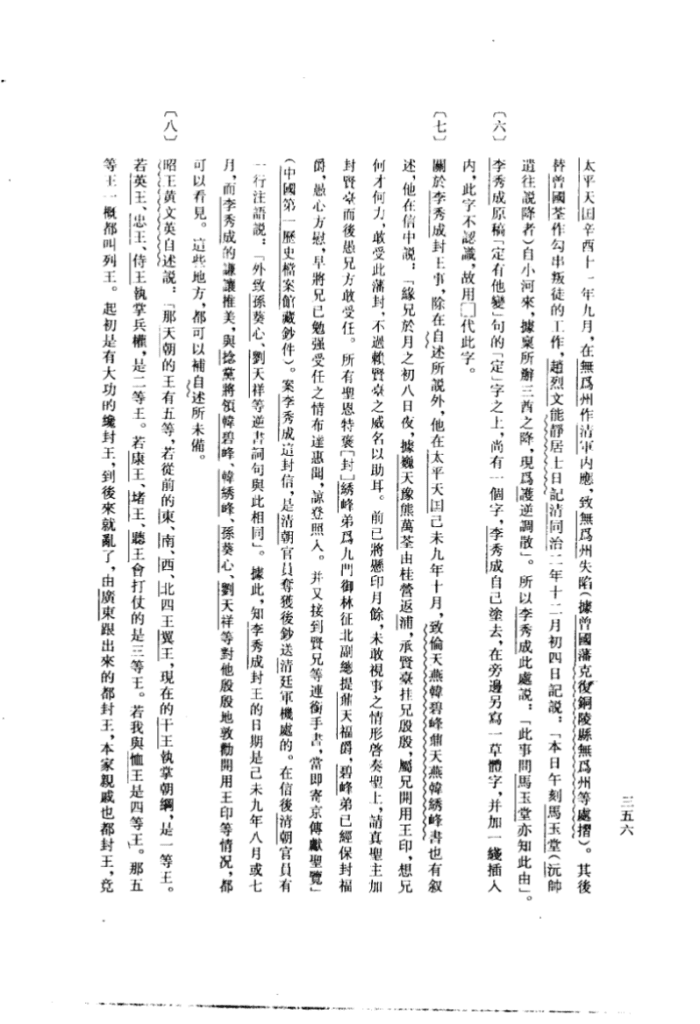 三五六
太平天囯辛酉十一年九月，在無爲州作清軍内應，致無爲州失陷（據曾國藩克復銅陵縣無爲州等處摺）。其後
替曾國荃作勾串叛徒的工作，趙烈文能靜居士日記清同治二年十二月初四日記説：「本日午刻馬玉堂（沅帥
遣往説降者）自小河來，據稟所辦三酉之降，現爲護逆調散」。所以李秀成此處説：「此事問馬玉堂亦知此由」。
〔六〕李秀成原稿「定有他變」句的「定」字之上，尚有一個字，李秀成自己塗去，在旁邊另寫一草體字，并加一綫插入
内，此字不認識，故用□代此字。
〔七〕關於李秀成封王事，除在自述所説外，他在太平天囯己未九年十月，致倫天燕韓碧峰𪔂天燕韓綉峰書也有叙
述，他在信中説：「緣兄於月之初八日夜，據巍天豫熊萬荃由桂營返浦，承賢臺挂兄殷殷，屬兄開用王印，想兄
何才何力，敢受此藩封，不過賴賢臺之威名以助耳。前已將懸印月餘，未敢視事之情形啓奏聖上，請真聖主加
封賢臺而後愚兄方敢受任。所有聖恩特褒［封］綉峰弟爲九門御林征北副總提𪔂天福爵，碧峰弟已經保封福
爵，愚心方慰，早將兄已勉强受任之情布達惠聞，諒登照入。并又接到賢兄等連銜手書，當即寄京傳獻聖覽」
（中國第一歷史檔案館藏鈔件）。案李秀成這封信，是清朝官員奪獲後鈔送清廷軍機處的。在信後清朝官員有
一行注語説：「外致孫葵心、劉天祥等逆書詞句與此相同」。據此，知李秀成封王的日期是己未九年八月或七
月，而李秀成的謙讓推美，與捻黨將領韓碧峰、韓綉峰、孫葵心、劉天祥等對他殷殷地敦勸開用王印等情況，都
可以看見。這些地方，都可以補自述所未備。
〔八〕昭王黄文英自述説：「那天朝的王有五等，若從前的東、南、西、北四王翼王，現在的干王執掌朝綱，是一等王。
若英王、忠王、侍王執掌兵權，是二等王。若康王、堵王、聽王會打仗的是三等王。若我與恤王是四等王。那五
等王一概都叫列王。起初是有大功的纔封王，到後來就亂了，由廣東跟出來的都封王，本家親戚也都封王，竟